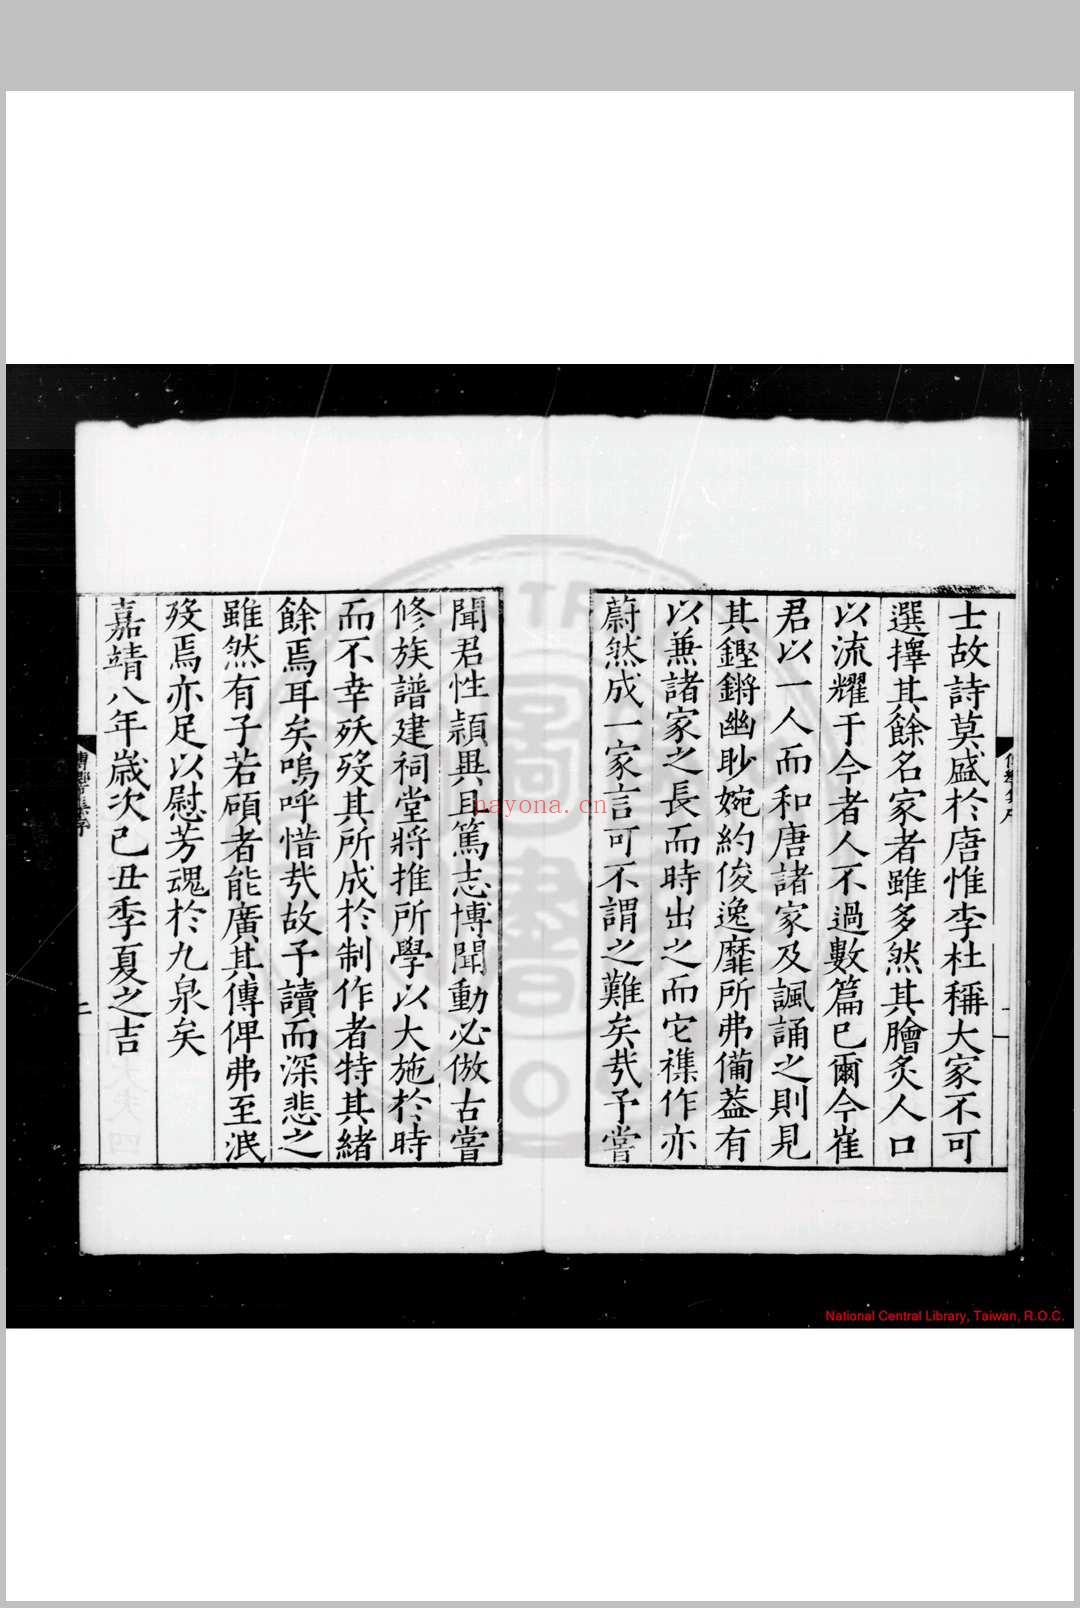 士故詩莫盛於唐惟李杜稱大家不可
選擇其餘名家者雖多然其膾炙人口
以流耀于今者人不過數篇已爾今崔
君以一人而和唐諸家及諷誦之則見
其鏗鏘幽眇婉約俊逸靡所弗備蓋有
以兼諸家之長而時出之而它襍作亦
蔚然成一家言可不謂之難矣哉予嘗
聞君性穎異且篤志博聞動必倣古嘗
修族譜建祠堂將推所學以大施於時
而不幸殀歿其所成於制作者特其緒
餘焉耳矣嗚呼惜哉故予讀而深悲之
雖然有子若碩者能廣其傳俾弗至泯
歿焉亦足以慰芳魂於九泉矣
嘉靖八年歲次己丑季夏之吉
二
nayona.cn
National Central Library, Taiwan, R.O.C.